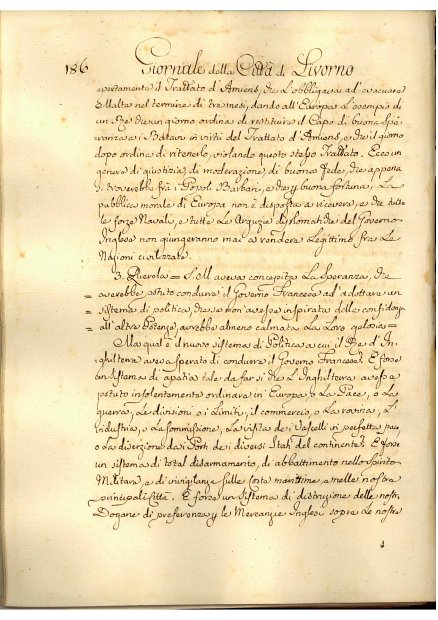 186 Giornale della Città di Livorno
apertamente il Trattato d'Amiens, che l'obbligava ad evacuare
Malta nel termine di tre mesi, dando all'Europa l'esempio di
un Re che un giorno ordina di restituire il Capo di buona Spe-
ranza ai Batavi in virtù del Trattato d'Amiens, e che il giorno
dopo ordina di ritenerlo, violando questo stesso Trattato. Ecco un
genere di giustizia, di moderazione, di buona fede, che appena
si troverebbe frà i Popoli Barbari, e che p buona fortuna, La
pubblica morale di Europa non è disposta a ricevere, e che tutte
le forze Navali, e tutte le Arguzie diplomatiche del Governo
Inglese non giungeranno mai a rendere Legittimo fra Le
Nazioni civilizzate.
3. Querela = S. M. aveva concepita La Speranza, che
= averebbe potuto condurre il Governo Francese ad adottare un
= sistema di politica, che se non avesse inspirata delle confidenze
= all'altre Potenze, avrebbe almeno calmata La Loro gelosia =
Ma qual'è il nuovo sistema di Politica a cui il Re d'In-
ghilterra aveva sperato di condurre il Governo Francese? È forse
un sistema di apatia tale da far sì che L'Inghilterra avesse
potuto insolentemente ordinare in Europa, o La Pace, o La
guerra, Le divisioni o i Limiti, il commercio, o La rovina, L'
industria, o La sommissione, La visita dei Vascelli in perfetta pace
o La diserzione dai Porti dei diversi Stati del continente? È forse
un sistema di total disarmamento, di abbattimento nello Spirito
Militare, e di vigilanze sulle Coste marittime, e nelle nostre
principali Città. È forse un Sistema di distruzione delle nostre
Dogane, di preferenza p le Mercanzie Inglesi sopra Le nostre